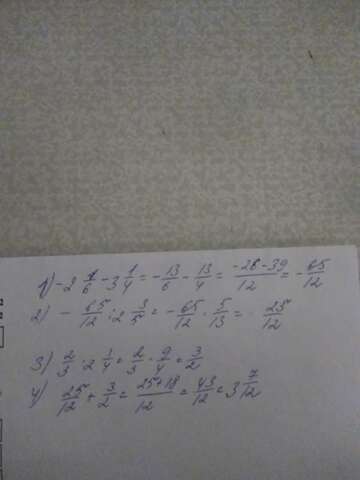 1) -2 1/6 - 3 1/4 = -13/6 - 13/4 = -26-39/12 = -65/12
2) -65/12 : 2 3/5 = -65/12 · 5/13 = -25/12
3) 2/3 · 2 1/4 = 2/3 · 9/4 = 3/2
4) 25/12 + 3/2 = 25+18/12 = 43/12 = 3 7/12